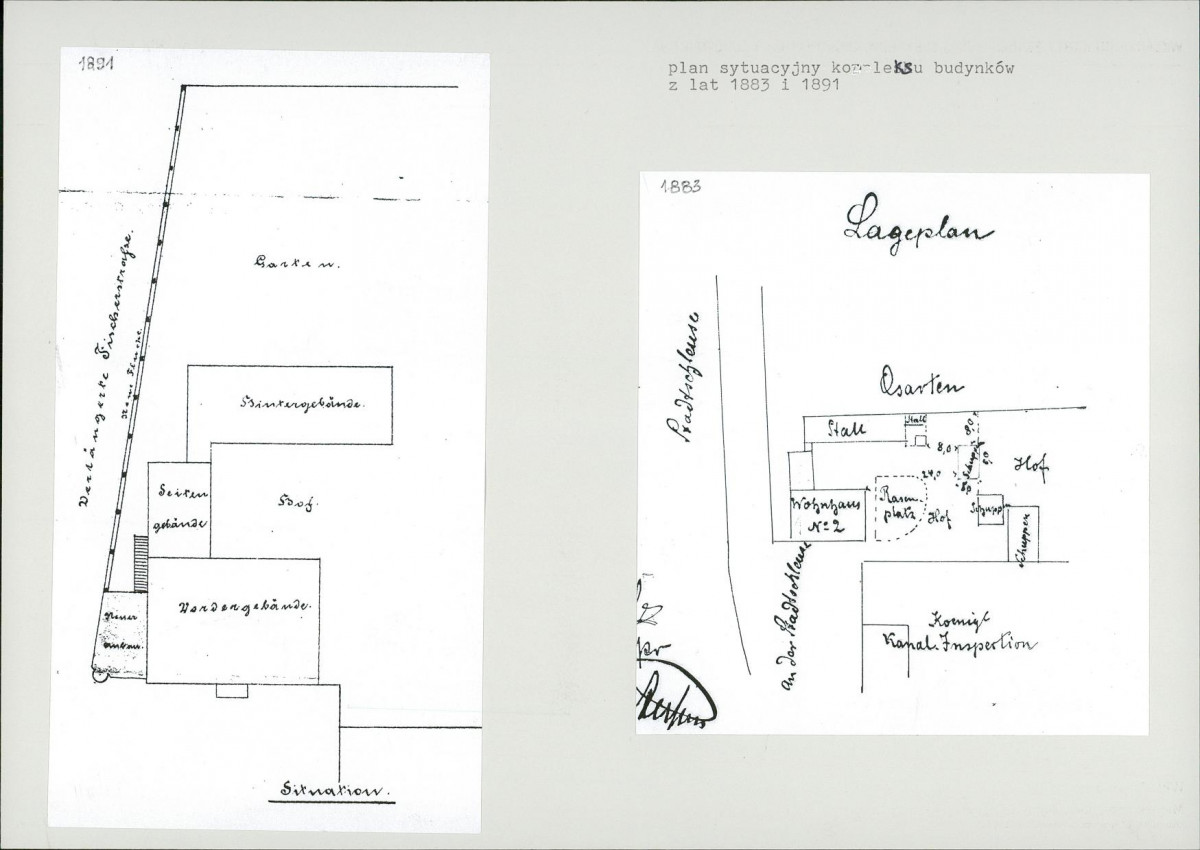 1891
plan sytuacyjny kompleksu budynków
z lat 1883 i 1891
Garten.
Verlängerte Fischerstraße.
Hintergebäude.
Seiten
gebäude
Hof.
Vordergebäude.
Neuer
Anbau.
Situation.
1883
Lageplan
Stadtschleuse
Garten
Stall
Stall
8,0
8,0
24,0
Schuppen
Hof
Rasen
platz
Hof
Wohnhaus
No 2
Schupp
Schuppen
an der Stadtschleuse
Koenigl
Kanal. Inspection